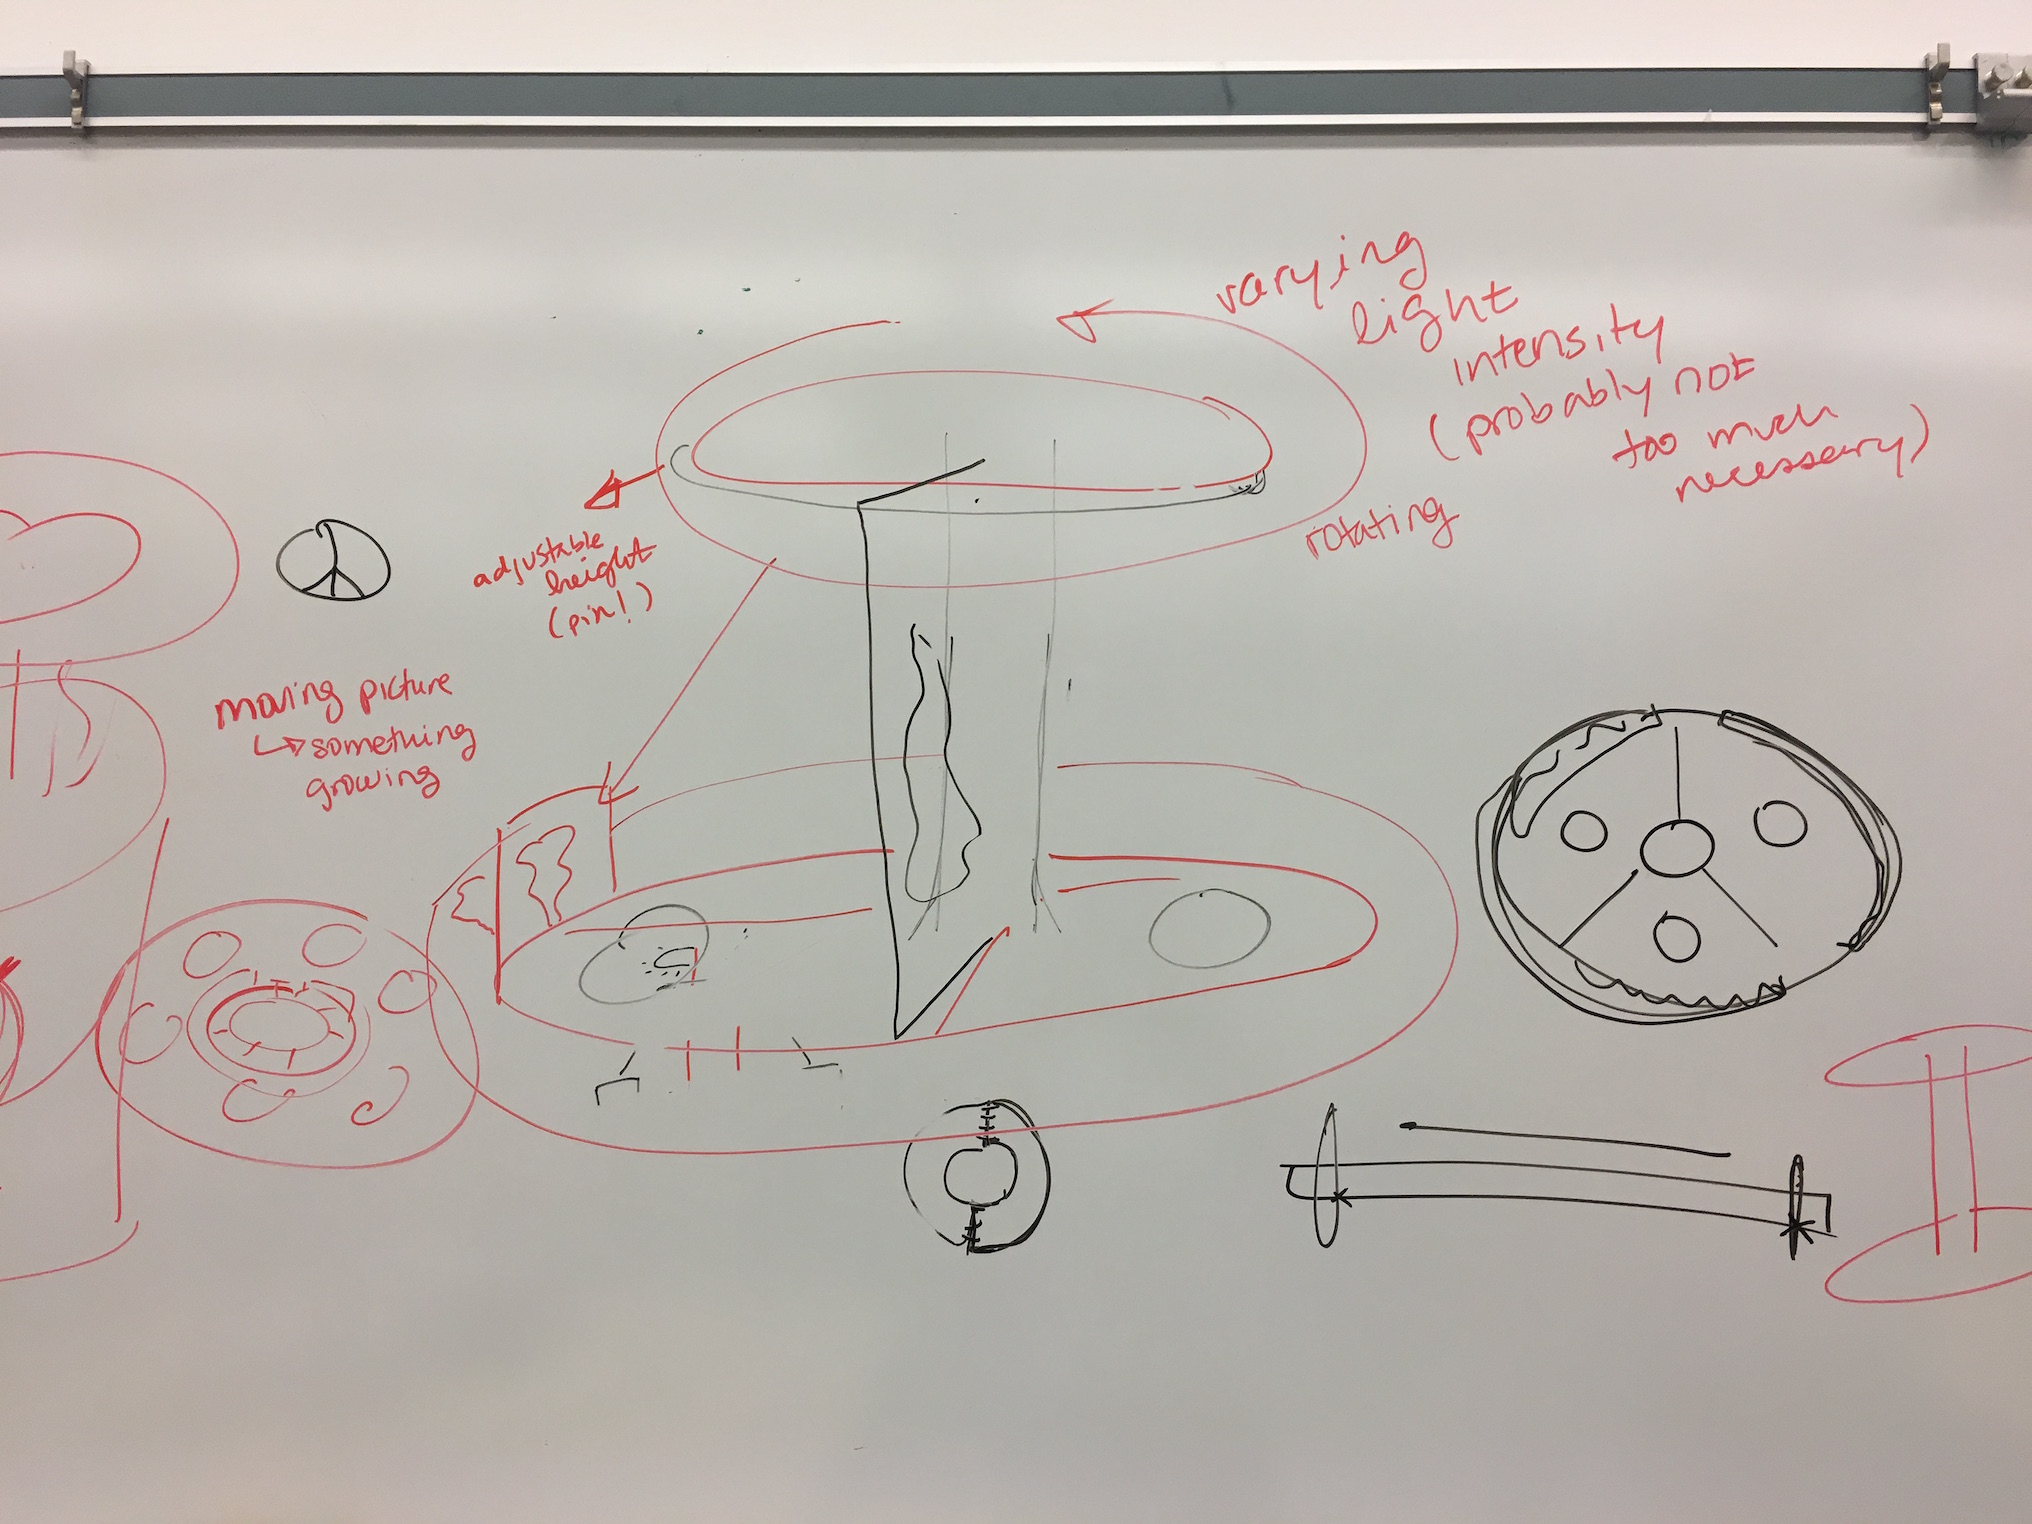 varying
light
intensity
(probably not
too much
necessary)
rotating
adjustable
height
(pin!)
moving picture
↳ something
growing